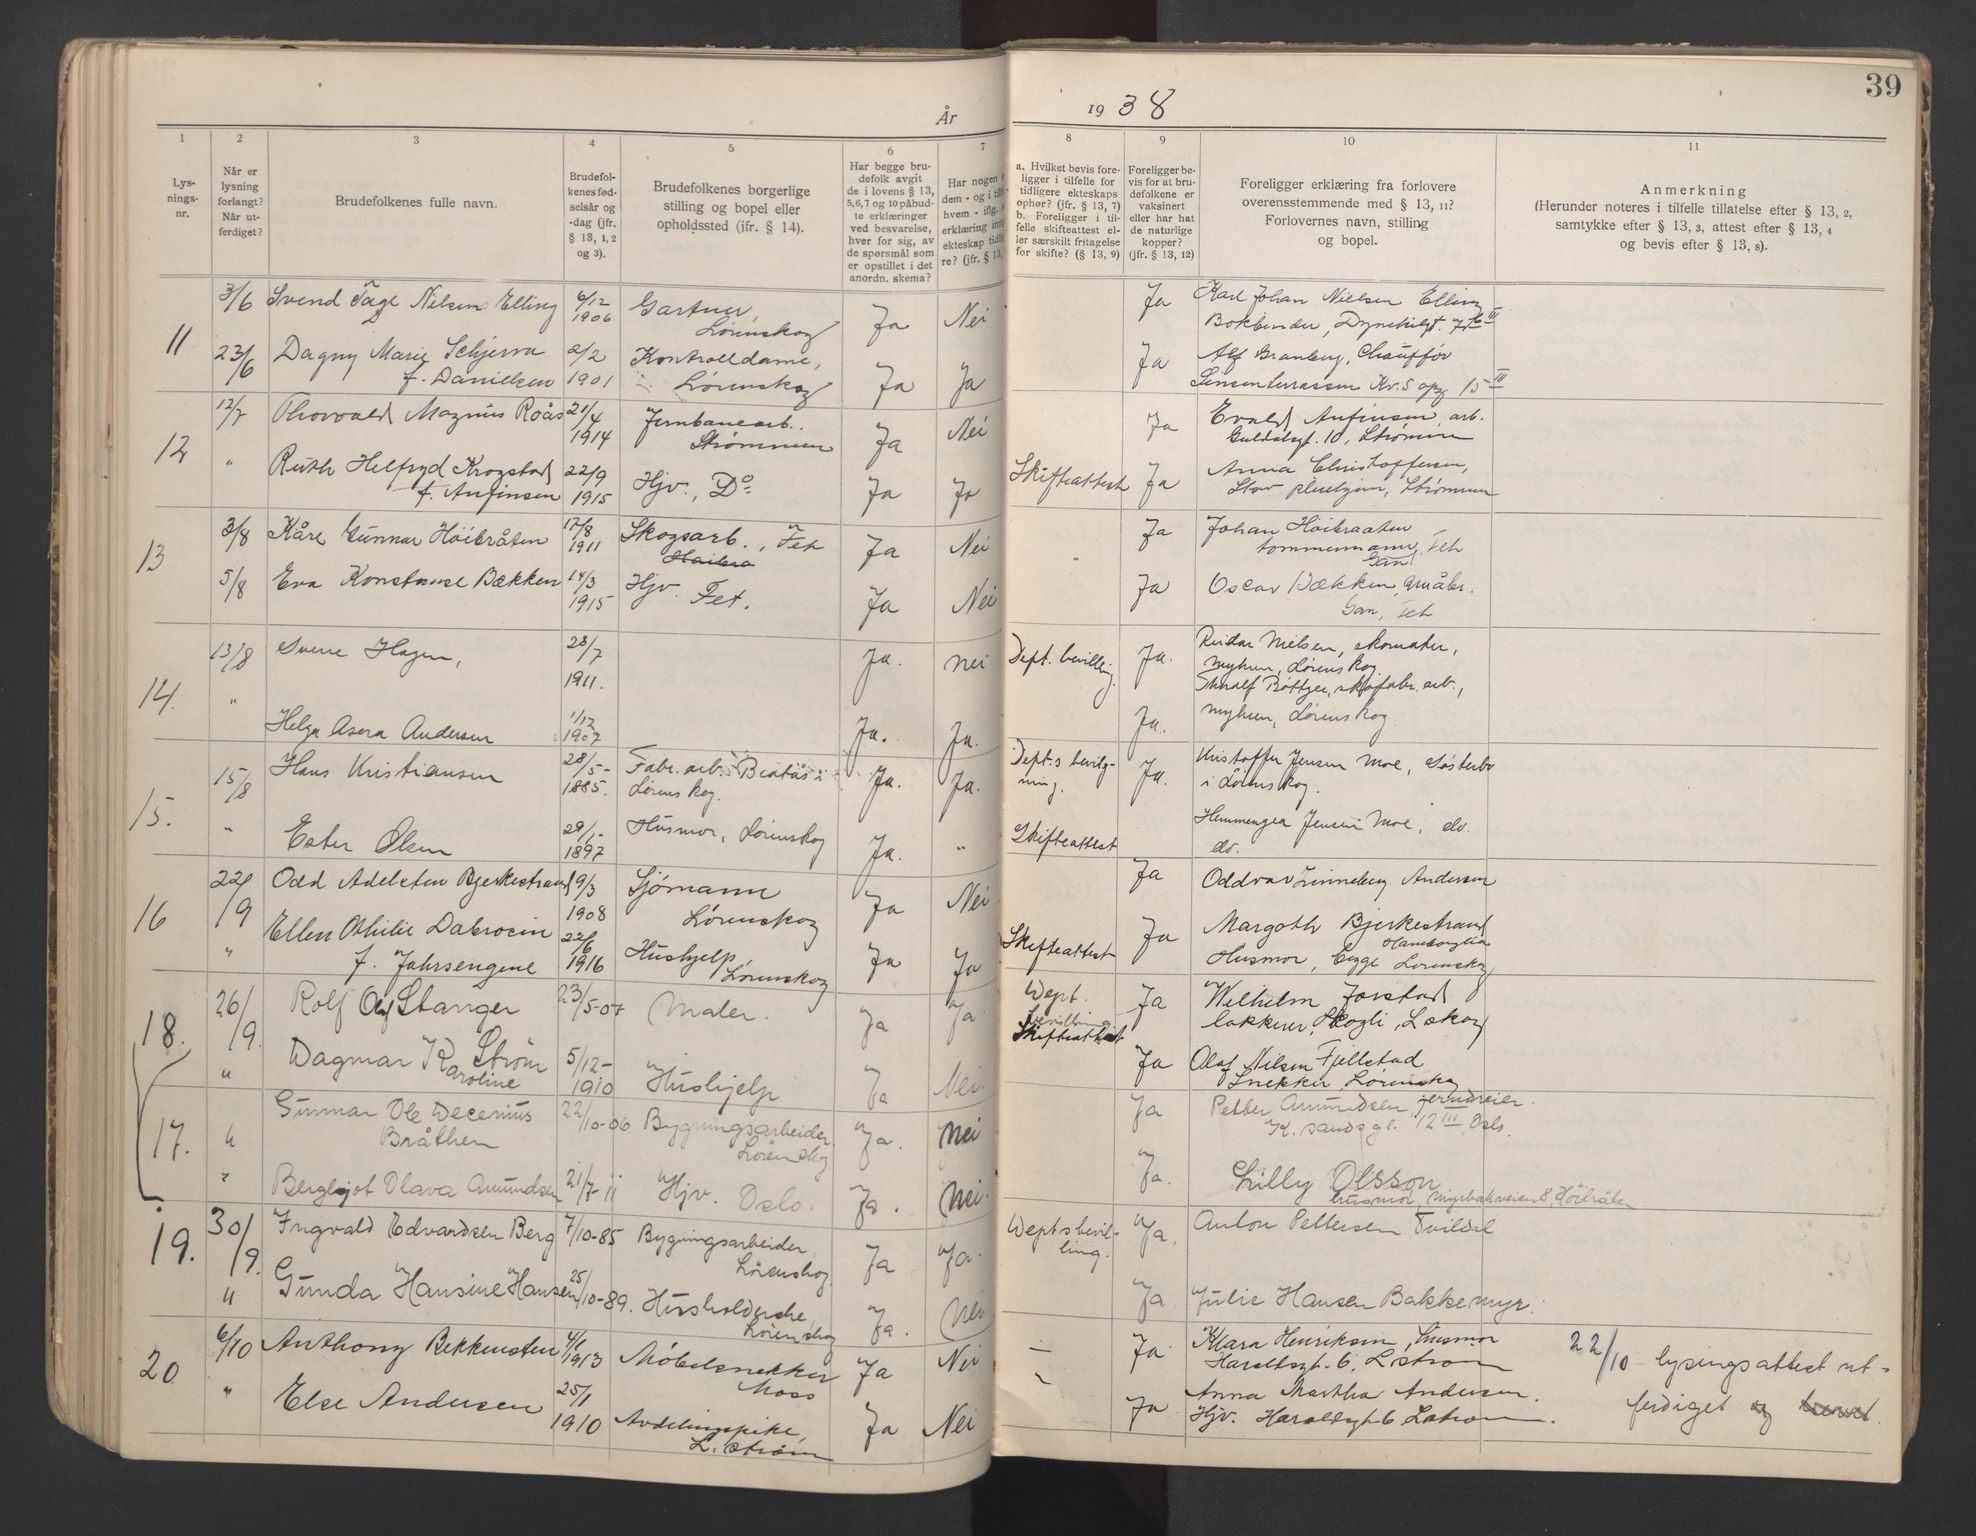 39
År
1938
1
2
3
4
5
6
7
8
9
10
11
Lys-
nings-
nr.
Når er
lysning
forlangt?
Når ut-
ferdiget?
Brudefolkenes fulle navn.
Brudefol-
kenes fød-
selsår og
-dag (jfr.
§ 13, 1, 2
og 3).
Brudefolkenes borgerlige
stilling og bopel eller
opholdssted (jfr. § 14).
Har begge bru-
defolk avgit
de i lovens § 13,
5,6,7 og 10 påbud-
te erklæringer
ved besvarelse,
hver for sig, av
de spørsmål som
er opstillet i det
anordn. skema?
Har nogen
dem - og i
hvem - iflg.
erklæring
ekteskap
re? (jfr. § 13,
a. Hvilket bevis fore-
ligger i tilfelle for
tidligere ekteskaps
ophør? (jfr. § 13, 7)
b. Foreligger i til-
felle skifteattest el-
ler særskilt fritagelse
for skifte? (§ 13, 9)
Foreligger be-
vis for at bru-
defolkene er
vaksinert
eller har hat
de naturlige
kopper?
(jfr. § 13, 12)
Foreligger erklæring fra forlovere
overensstemmende med § 13, 11?
Forlovernes navn, stilling
og bopel.
Anmerkning
(Herunder noteres i tilfelle tillatelse efter § 13, 2,
samtykke efter § 13, 3, attest efter § 13, 4
og bevis efter § 13, 8).
11
3/6 Svend Tage Nielsen Elling 6/12 1906 Gartner, Lørenskog Ja Nei Ja Karl Johan Nielsen Elling
Bokbinder,
23/6 Dagny Marie Schjerva 2/2 1901 Kontrolldame, Ja Alf Branberg, Chauffør
f. Danielsen Lørenskog Ja Ja Sinsenterrassen Kv. 5 opg 15 III
12
12/7 Thorvald Magnus Roås 21/4 1914 Jernbanearb. Strømmen Ja Nei Ja Evald Anfinsen, arb.
10, Strømmen
" Ruth Helfryd Krogstad 22/9 1915 Hjv., Do Ja Ja Skifteattest Ja Anna Christoffersen,
f. Anfinsen Strømmen
13
3/8 Kåre Gunnar Höibråten 17/8 1911 Skogsarb., Fet Ja Nei Ja Johan Høibraaten
tømmermann, Fet
Gan
5/8 Eva Konstanse Bækken 14/3 1915 Hjv. Fet. Ja Nei Ja Oscar Bækken, småbr.
Gan, Fet
14.
13/8 Sverre Hagen, 28/7 1911. Ja. nei Dept. bevillg. Ja. Reidar Nielsen, skomaker,
myhren, Lørenskog.
Thoralf Böttger, skofabr. arb.,
" Helga Asora Andersen 1/12 1907 Ja. Ja. Ja. myhren, Lørenskog.
15.
15/8 Hans Kristiansen 28/5- 1885. Fabr. arb. i Lørenskog. Ja. Ja. Dept.s bevilg-
ning. Ja. Kristoffer Jensen Moe,
i Lørenskog.
" Ester Olsen 29/1- 1897 Husmor, Lørenskog Ja. " Skifteattest Jensen Moe, do.
do.
16
22/9 Odd Adelsten Bjerkestrand 9/3 1908 Sjømann Lørenskog Ja Nei Ja Oddvar Linneberg Andersen
" Ellen Othilie Dabrocin 22/6 1916 Hushjelp, Lørenskog Ja Ja Skifteattest Ja Margoth Bjerkestrand
f. Jahrsengene Husmor, Lørenskog
18.
26/9. Rolf Olaf Stanger 23/5-07 Maler. Ja Ja. Dept.
bevillning
Skifteattest Ja Wilhelm Jorstad
lakkerer, Skogli, L.skog
" Dagmar K Strøm 5/12- 1910 Hushjelp Ja Nei. Ja Olaf Nilsen Fjellstad
Karoline Snekker, Lørenskog
17.
" Gunnar Ole Decenius 22/10-06 Bygningsarbeider. Ja. Nei Ja Petter Amundsen
Bråthen Lørenskog K. sandsgt. 12 III, Oslo.
" Bergljot Olava Amundsen 21/7-11 Hjv. Oslo. Ja. Nei. Ja. Lilly Olsson
husmor, Myrbakveien 8, Höibråten
19.
30/9. Ingvald Edvardsen Berg 7/10-85 Bygningsarbeider, Lörenskog. Ja Ja. Deptsbevil-
ling. Ja. Anton Pettersen Tvildal
" Gunda Hansine Hansen 25/10-89. Husholderske, Lörenskog Ja. Nei Ja. Julie Hansen Bakkemyr.
20
6/10 Anthony Bekkensten 4/1 1913 Møbelsnekker Moss Ja Nei - Ja Klara Henriksen, Husmor
Haraldsgt. 6, L.strøm
22/10 - lysingsattest ut-
ferdiget og
" Else Andersen 25/1 1910 Avdelingspike, L. strøm Ja Nei Ja Anna Martha Andersen.
Hjv. Haraldsgt. 6 L.strøm.